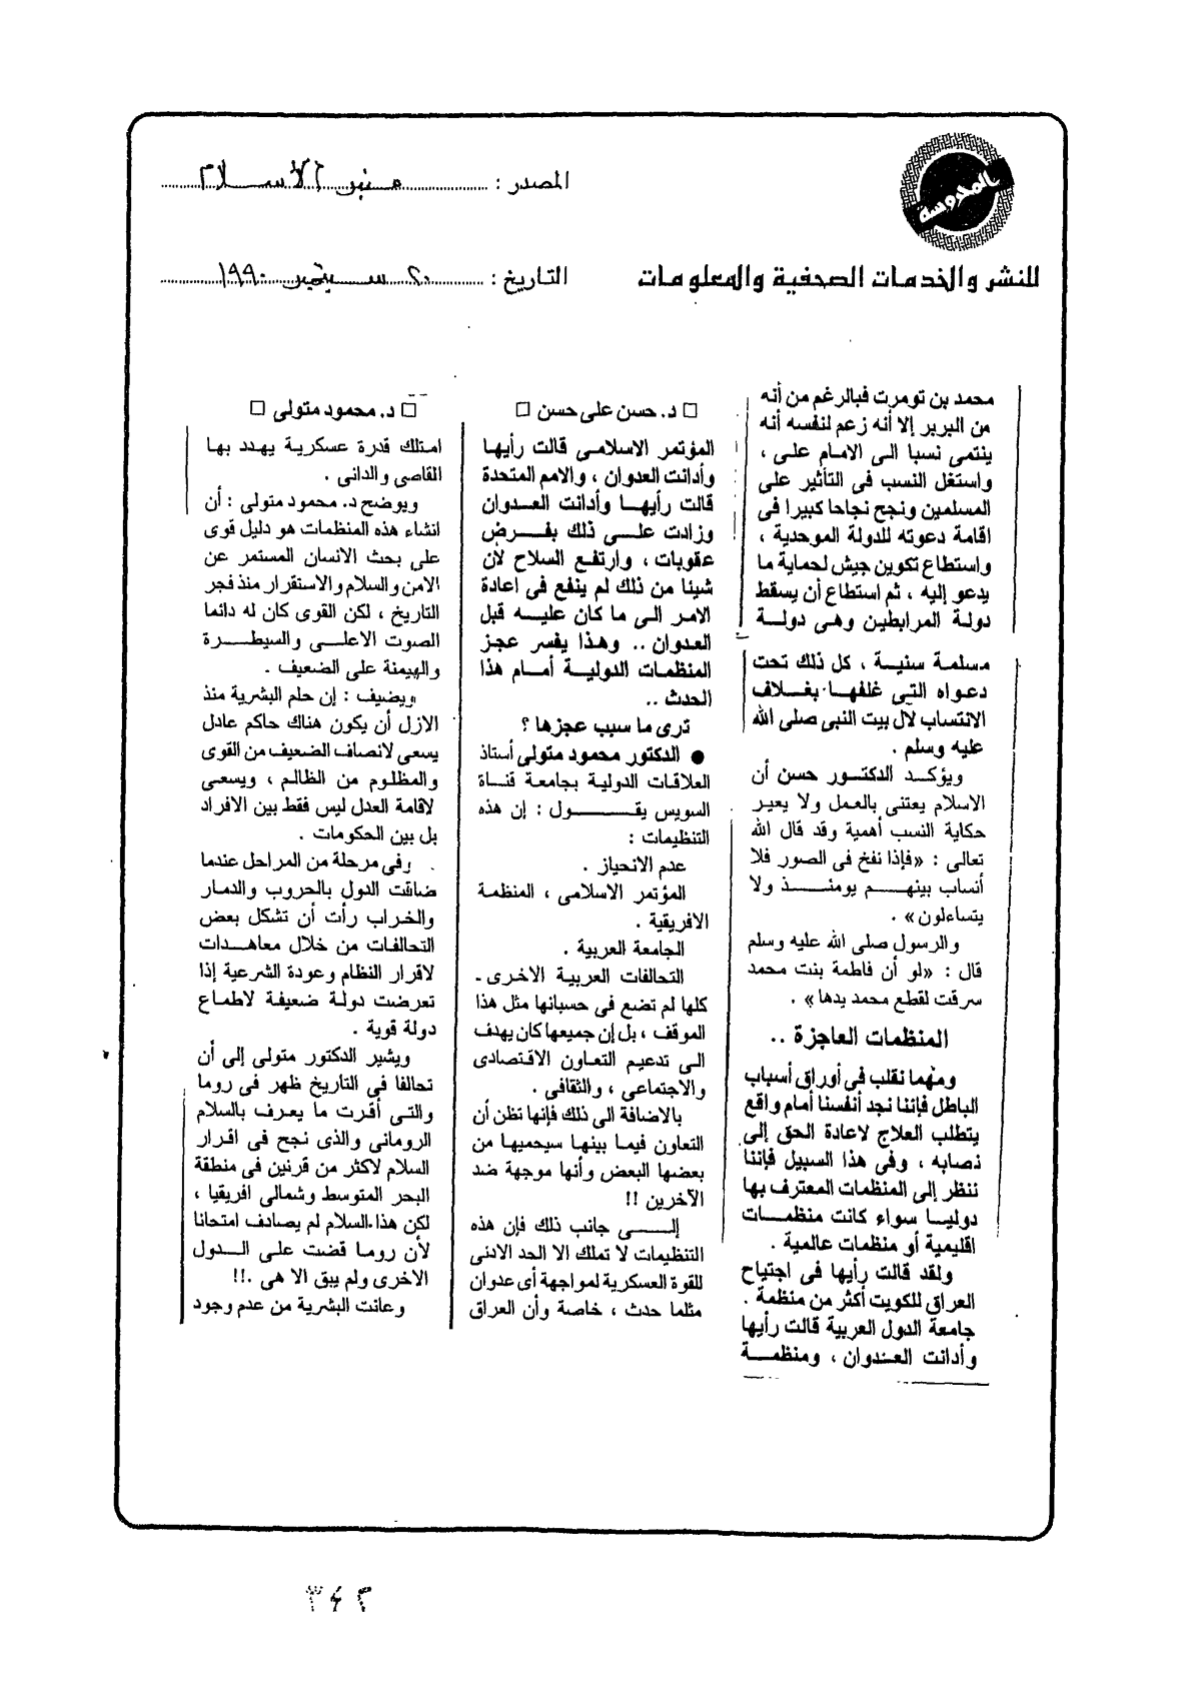 المحروسة
للنشر والخدمات الصحفية والمعلومات
المصدر : منبر الاسلام
التاريخ : ٢٠ سبتمبر ١٩٩٠
محمد بن تومرت فبالرغم من أنه
من البربر إلا أنه زعم لنفسه أنه
ينتمى نسبا الى الامام على ،
واستغل النسب فى التأثير على
المسلمين ونجح نجاحا كبيرا فى
اقامة دعوته للدولة الموحدية ،
واستطاع تكوين جيش لحماية ما
يدعو إليه ، ثم استطاع أن يسقط
دولة المرابطين وهى دولة
مسلمة سنية ، كل ذلك تحت
دعواه التى غلفها بغلاف
الانتساب لآل بيت النبى صلى الله
عليه وسلم .
ويؤكد الدكتور حسن أن
الاسلام يعتنى بالعمل ولا يعير
حكاية النسب أهمية وقد قال الله
تعالى : «فإذا نفخ فى الصور فلا
أنساب بينهم يومئذ ولا
يتساءلون» .
والرسول صلى الله عليه وسلم
قال : «لو أن فاطمة بنت محمد
سرقت لقطع محمد يدها» .
المنظمات العاجزة ..
ومهما نقلب فى أوراق أسباب
الباطل فإننا نجد أنفسنا أمام واقع
يتطلب العلاج لاعادة الحق إلى
نصابه ، وفى هذا السبيل فإننا
ننظر إلى المنظمات المعترف بها
دوليا سواء كانت منظمات
اقليمية أو منظمات عالمية .
ولقد قالت رأيها فى اجتياح
العراق للكويت أكثر من منظمة .
جامعة الدول العربية قالت رأيها
وأدانت العدوان ، ومنظمة
□ د. حسن على حسن □
المؤتمر الاسلامى قالت رأيها
وأدانت العدوان ، والامم المتحدة
قالت رأيها وأدانت العدوان
وزادت على ذلك بفرض
عقوبات ، وارتفع السلاح لأن
شيئا من ذلك لم ينفع فى اعادة
الامر الى ما كان عليه قبل
العدوان .. وهذا يفسر عجز
المنظمات الدولية أمام هذا
الحدث ..
ترى ما سبب عجزها ؟
● الدكتور محمود متولى أستاذ
العلاقات الدولية بجامعة قناة
السويس يقول : إن هذه
التنظيمات :
عدم الانحياز .
المؤتمر الاسلامى ، المنظمة
الافريقية .
الجامعة العربية .
التحالفات العربية الاخرى -
كلها لم تضع فى حسبانها مثل هذا
الموقف ، بل إن جميعها كان يهدف
الى تدعيم التعاون الاقتصادى
والاجتماعى ، والثقافى .
بالاضافة الى ذلك فإنها تظن أن
التعاون فيما بينها سيحميها من
بعضها البعض وأنها موجهة ضد
الآخرين !!
إلى جانب ذلك فإن هذه
التنظيمات لا تملك الا الحد الادنى
للقوة العسكرية لمواجهة أى عدوان
مثلما حدث ، خاصة وأن العراق
□ د. محمود متولى □
امتلك قدرة عسكرية يهدد بها
القاصى والدانى .
ويوضح د. محمود متولى : أن
انشاء هذه المنظمات هو دليل قوى
على بحث الانسان المستمر عن
الامن والسلام والاستقرار منذ فجر
التاريخ ، لكن القوى كان له دائما
الصوت الاعلى والسيطرة
والهيمنة على الضعيف .
ويضيف : إن حلم البشرية منذ
الازل أن يكون هناك حاكم عادل
يسعى لانصاف الضعيف من القوى
والمظلوم من الظالم ، ويسعى
لاقامة العدل ليس فقط بين الافراد
بل بين الحكومات .
وفى مرحلة من المراحل عندما
ضاقت الدول بالحروب والدمار
والخراب رأت أن تشكل بعض
التحالفات من خلال معاهدات
لاقرار النظام وعودة الشرعية إذا
تعرضت دولة ضعيفة لاطماع
دولة قوية .
ويشير الدكتور متولى إلى أن
تحالفا فى التاريخ ظهر فى روما
والتى أقرت ما يعرف بالسلام
الرومانى والذى نجح فى اقرار
السلام لاكثر من قرنين فى منطقة
البحر المتوسط وشمالى افريقيا ،
لكن هذا السلام لم يصادف امتحانا
لأن روما قضت على الدول
الاخرى ولم يبق الا هى .!!
وعانت البشرية من عدم وجود
٣٤٢